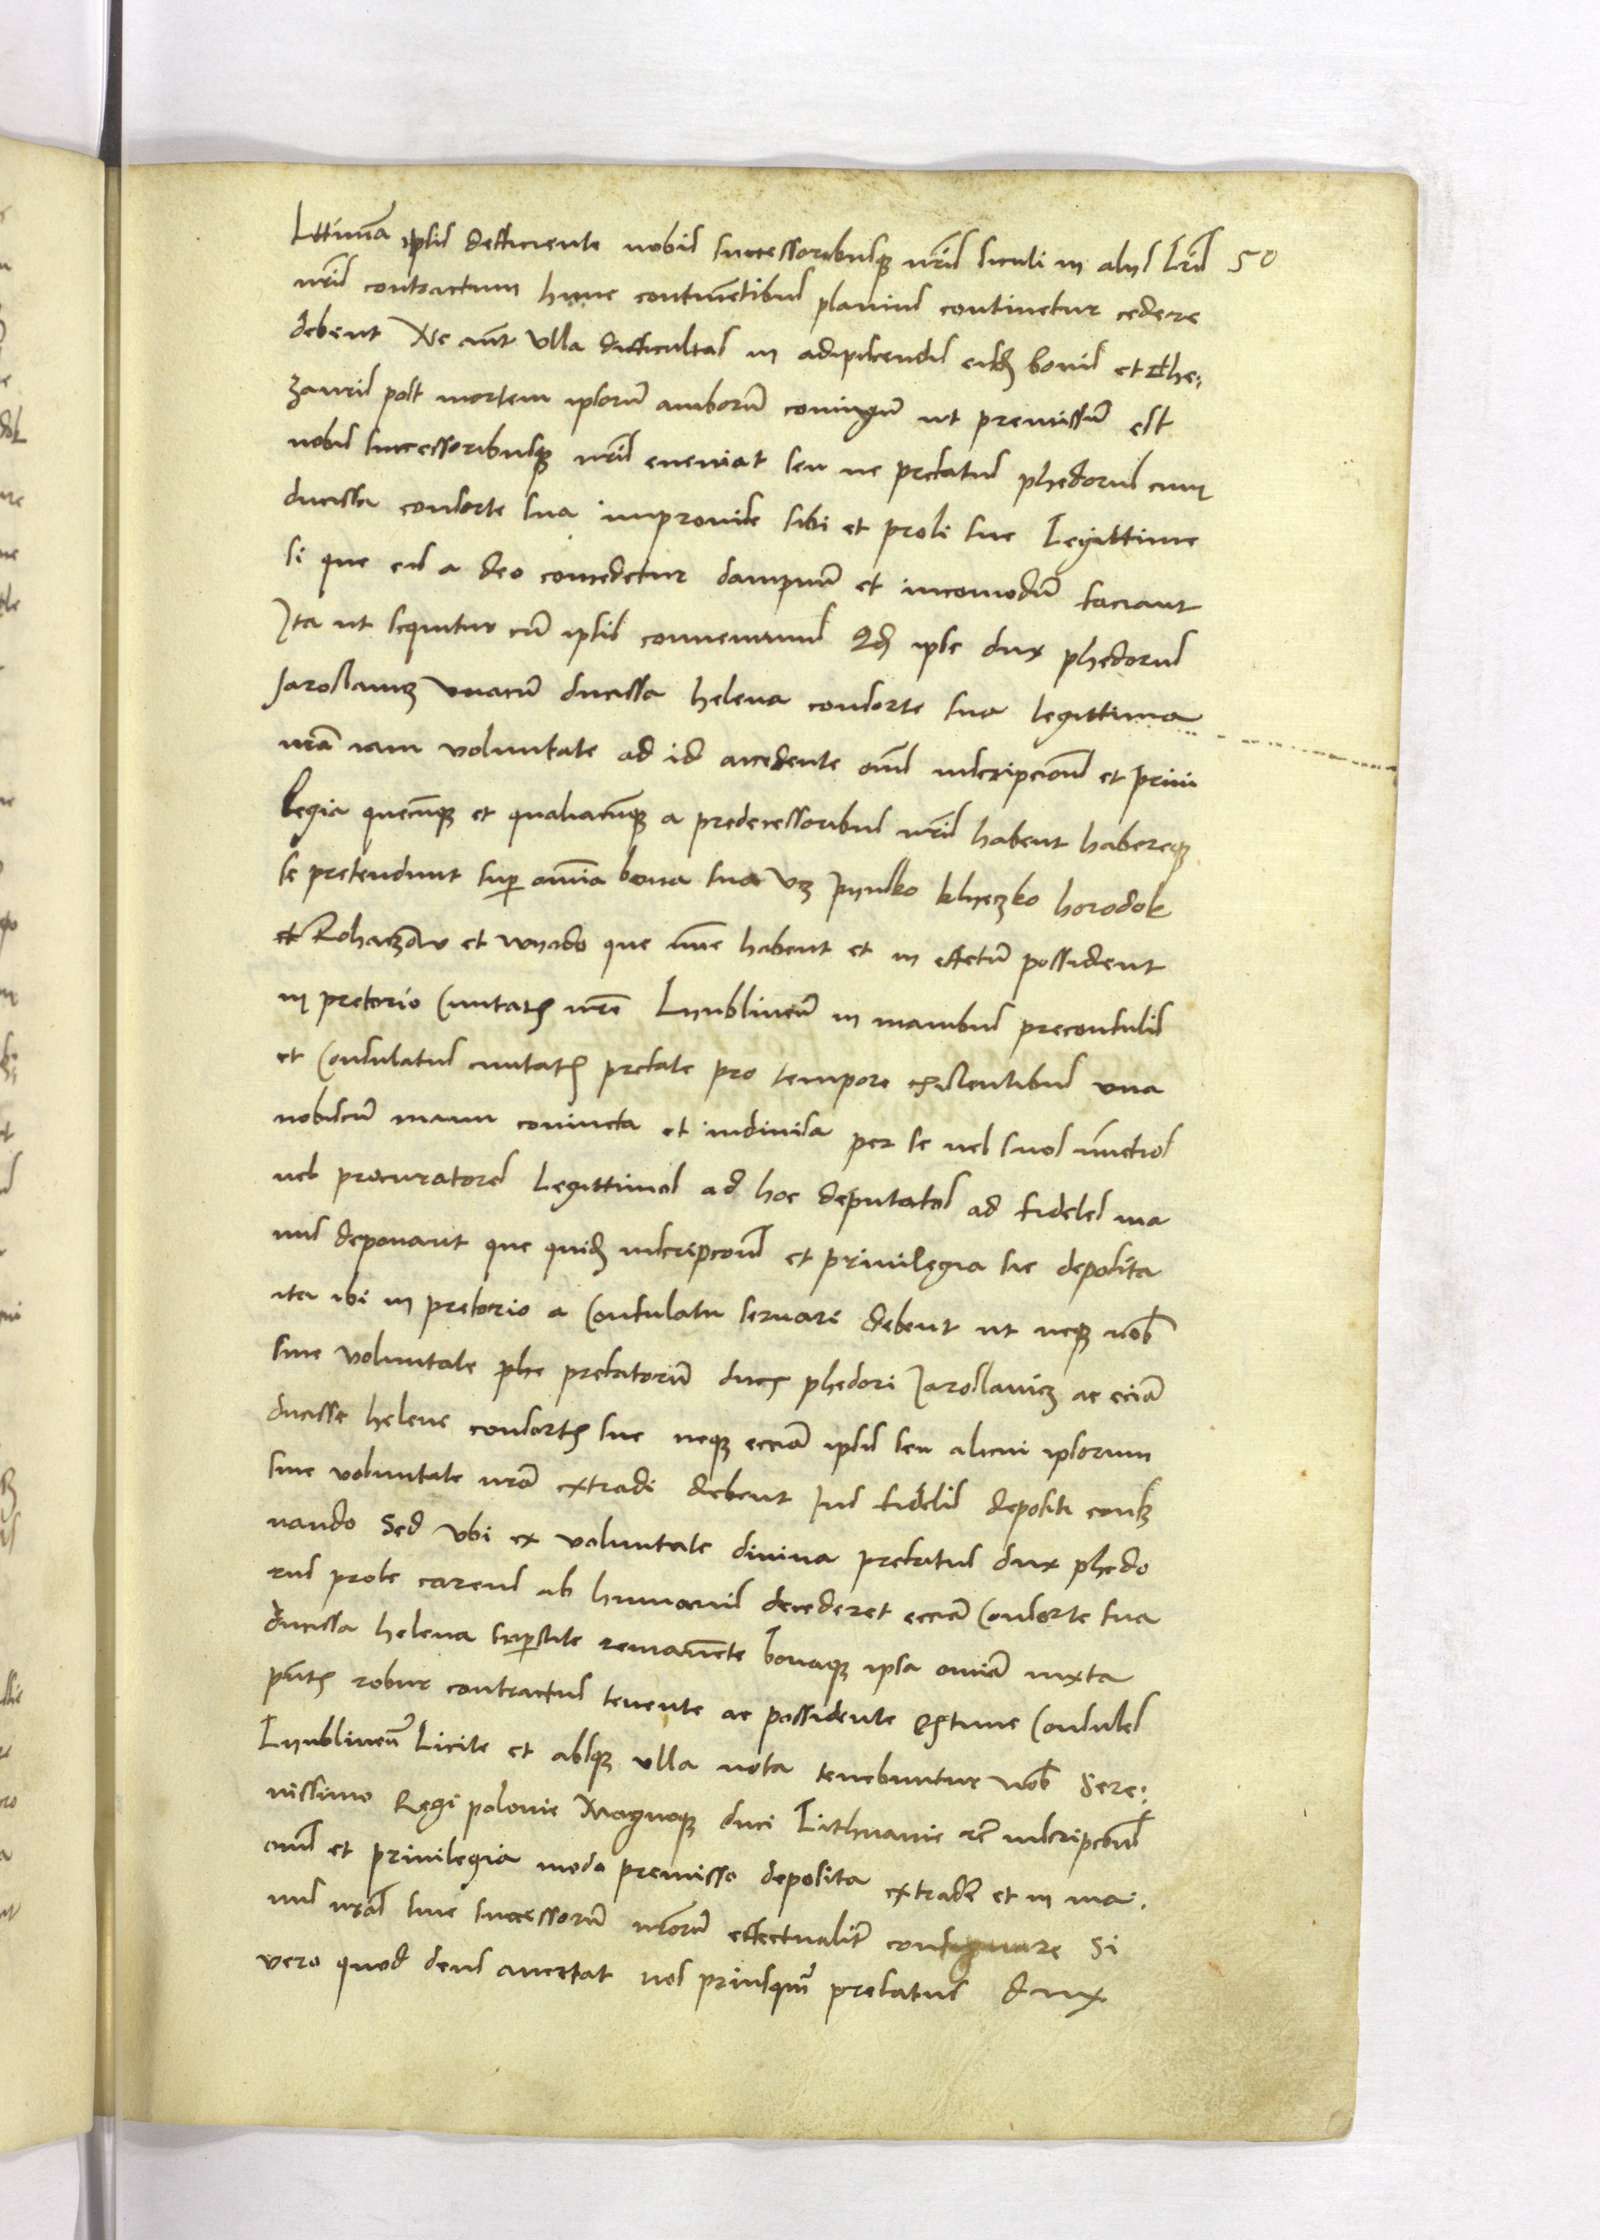 Lttimã ipsis deficiente nobis successoribusq̃ nr̃is sicuti in alijs Lr̃is 50
nr̃is contractum hunc continẽtibus planius continetur cedere
debent Ne aũt Ulla difficultas in adipiscendis eisdẽ bonis et The:
zauris post mortem ipsorũ amborũ coniugũ ut premissũ est
nobis successoribusq̃ nr̃is eveniat seu ne prefatus phedorus cum
ducissa consorte sua improvide sibi et proli sue Legittime
si que eis a deo concedetur dampnũ et incomodũ faciant
Ita ut sequitur cũ ipsis convenimus Qd̃ ipse dux phedorus
Jaroslauicz vnacũ ducissa helena consorte sua legittima
nr̃a iam voluntate ad id accedente om̃s inscripciões et priui
legia quecũq̃ et qualiacũq̃ a predecessoribus nr̃is habent habereq̃
se pretendunt sup omĩa bona sua Vz pynsko klyeczko horodek
et Rohaczow et wyado que nũc habent et in effectũ possident
in pretorio Ciuitatis nr̃e Lyublineñ in manibus preconsulis
et Consulatus ciuitatis prefate pro tempore existentibus vna
nobiscũ manu coniuncta et indiuisa per se uel suos nũctios
uel procuratores Legittimos ad hoc deputatos ad fideles ma
nus deponant que quidẽ inscripcões et priuilegia sic deposita
ita ibi in pretorio a Consulatu seruari debent ut neq̃ nob̃
sine voluntate phe prefatorũ ducis phedori Jaroslauicz ac eciã
ducisse helene consortis sue neq̃ eciã ipsis seu alicui ipsorum
sine voluntate nr̃a extradi debent Jus fidelis depositi conser
uando Sed Vbi ex voluntate diuina prefatus dux phedo
rus prole carens ab humanis decederet eciã Consorte sua
ducissa helena superstite remanẽte bonaq̃ ipsa omĩa iuxta
pñtis robur contractus tenente ac possidente extunc Consules
Lyublineñ Licite et absq̃ vlla nota tenebuntur Nob̃ Sere:
nissimo Regi polonie Magnoq̃ duci Lithuanie rc̃ inscripcões
om̃s et priuilegia modo premisso deposita extradẽ et in ma:
nus nr̃as siue successorũ nr̃orũ effectualitr̃ consignare Si
vero quod deus auertat nos priusquã prefatus dux